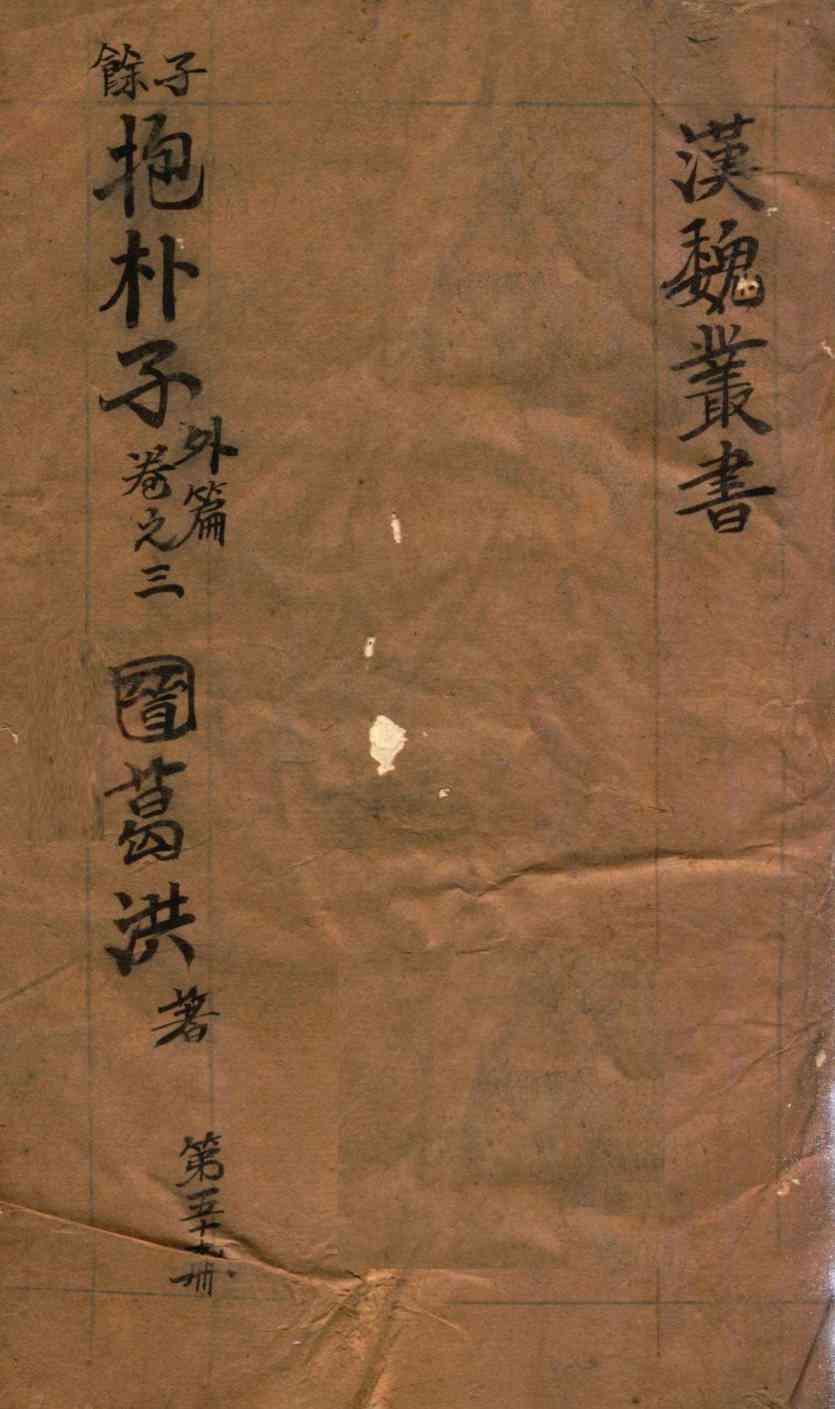 漢魏叢書
子餘
抱朴子
外篇
卷之三
晉
葛洪著
第五十九冊